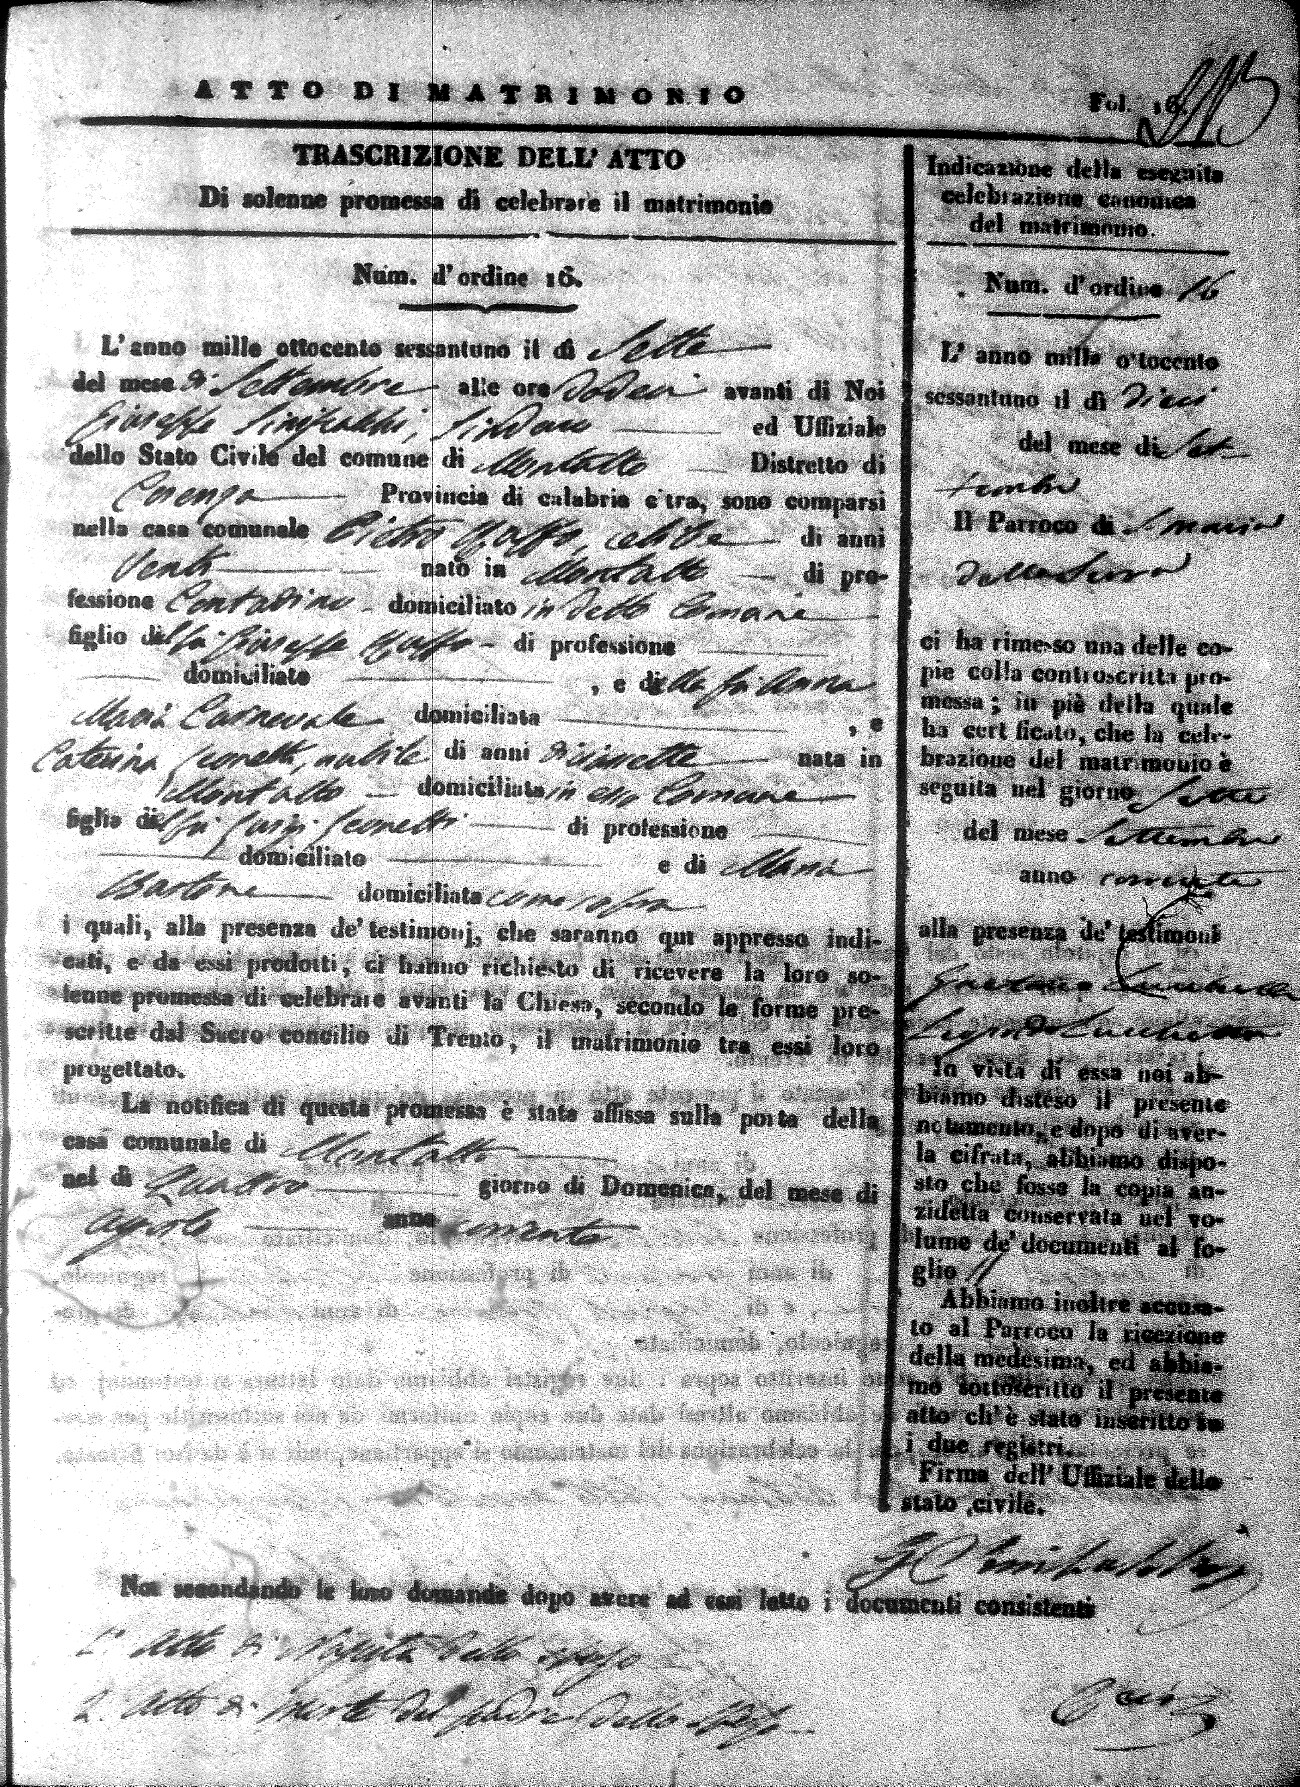 ATTO DI MATRIMONIO
Fol. 16.
TRASCRIZIONE DELL' ATTO
Di solenne promessa di celebrare il matrimonio
Num. d'ordine 16.
L'anno mille ottocento sessantuno il dì Sette
del mese di Settembre alle ore dodeci avanti di Noi
Giuseppe Sindaco ed Uffiziale
dello Stato Civile del comune di Montalto Distretto di
Cosenza Provincia di calabria citra, sono comparsi
nella casa comunale Pietro celibe di anni
Venti nato in Montalto di pro-
fessione Contadino domiciliato in detto Comune
figlio del fu Giuseppe di professione
domiciliato , e della fu Anna
Maria Carnevale domiciliata , e
Caterina nubile di anni diciassette nata in
Montalto domiciliata in esso Comune
figlia del fu Luigi di professione
domiciliato e di Maria
Bartone domiciliata come sopra
i quali, alla presenza de' testimonj, che saranno qui appresso indi-
cati, e da essi prodotti, ci hanno richiesto di ricevere la loro so-
lenne promessa di celebrare avanti la Chiesa, secondo le forme pre-
scritte dal Sacro concilio di Trento, il matrimonio tra essi loro
progettato.
La notifica di questa promessa è stata affissa sulla porta della
casa comunale di Montalto
nel dì Quattro giorno di Domenica, del mese di
agosto anno corrente
Noi secondando le loro domande dopo avere ad essi letto i documenti consistenti
1.° Atto di Nascita dello sposo
2. Atto di morte del padre dello sposo
Indicazione della eseguita
celebrazione canonica
del matrimonio.
Num. d'ordine 16
L' anno mille ottocento
sessantuno il dì dieci
del mese di Set-
tembre
Il Parroco di S. Maria
della Serra
ci ha rimesso una delle co-
pie colla controscritta pro-
messa; in piè della quale
ha certificato, che la cele-
brazione del matrimonio è
seguita nel giorno Sette
del mese Settembre
anno corrente
alla presenza de' testimoni
Gaetano
In vista di essa noi ab-
biamo disteso il presente
notamento, e dopo di aver-
la cifrata, abbiamo dispo-
sto che fosse la copia an-
zidetta conservata nel vo-
lume de' documenti al fo-
glio 11
Abbiamo inoltre accusa-
to al Parroco la ricezione
della medesima, ed abbia-
mo sottoscritto il presente
atto ch'è stato inscritto su
i due registri.
Firma dell' Uffiziale dello
stato civile.